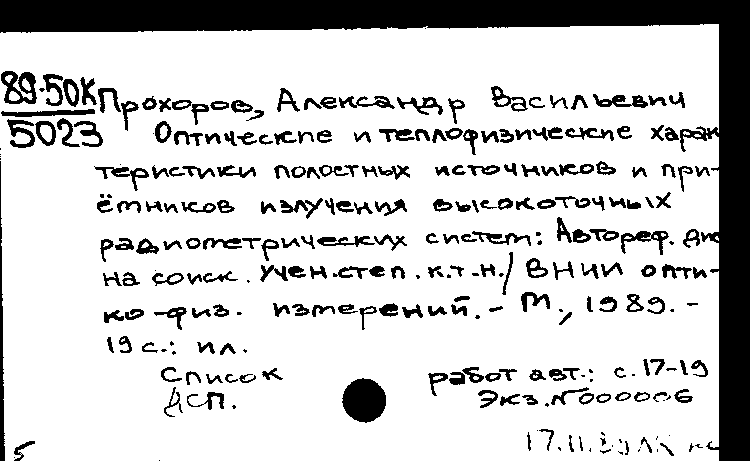 89-50К
5023
Прохоров, Александр Васильевич
Оптические и теплофизические харак
теристики полостных источников и при-
ёмников излучения высокоточных
радиометрических систем: Автореф. дис
на соиск. учен. степ. к.т.н./ ВНИИ опти-
ко-физ. измерений. - М., 1989. -
19 с.: ил.
Список работ авт.: с. 17-19
ДСП. Экз. N 000006
17.11.
5